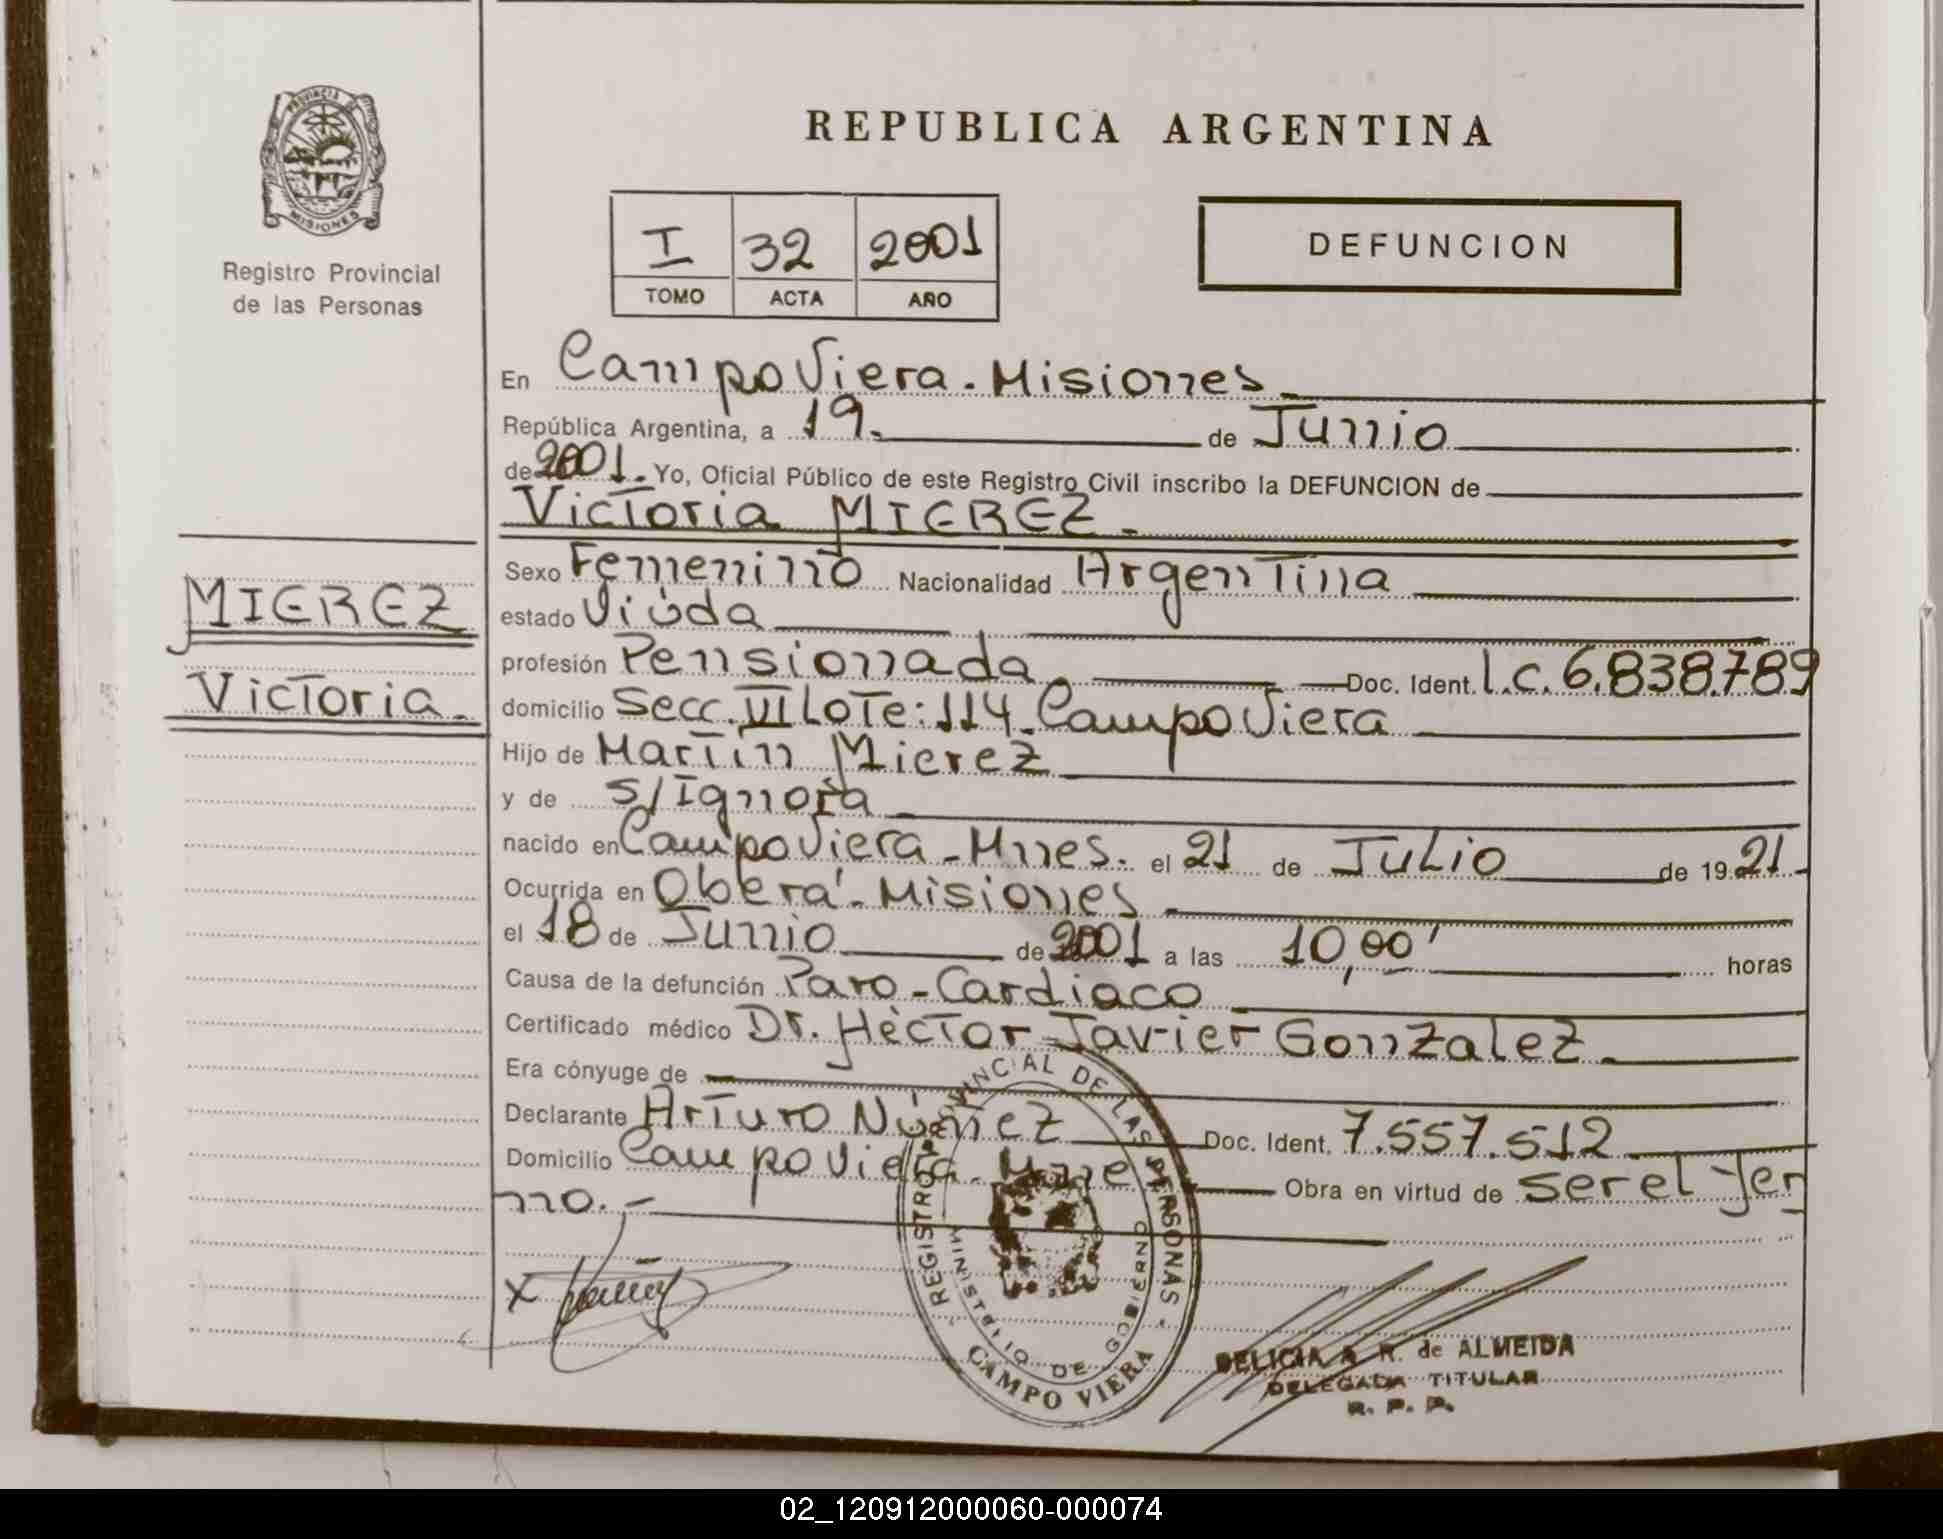 PROVINCIA DE
MISIONES
Registro Provincial
de las Personas
REPUBLICA ARGENTINA
I 32 2001
TOMO ACTA AÑO
DEFUNCION
En Campo Viera - Misiones
República Argentina, a 19. de Junio
de 2001. Yo, Oficial Público de este Registro Civil inscribo la DEFUNCION de
Victoria MIEREZ.
Sexo Femenino Nacionalidad Argentina
estado Viúda
profesión Pensionada Doc. Ident. L.C. 6.838.789
domicilio Secc. VI Lote: 114. Campo Viera
Hijo de Martin Mierez
y de S/Ignora
nacido en Campo Viera - Mnes. el 21 de Julio de 1921.
Ocurrida en Oberá - Misiones
el 18 de Junio de 2001 a las 10,00' horas
Causa de la defunción Paro - Cardiaco
Certificado médico Dr. Héctor Javier Gonzalez.
Era cónyuge de
Declarante Arturo Núñez Doc. Ident. 7.557.512
Domicilio Campo Viera. Mnes Obra en virtud de ser el yer
no.-
MIEREZ
Victoria.
X
REGISTRO PROVINCIAL DE LAS PERSONAS
MINISTERIO DE GOBIERNO
CAMPO VIERA
DELICIA A. R. de ALMEIDA
DELEGADA TITULAR
R. P. P.
02_120912000060-000074